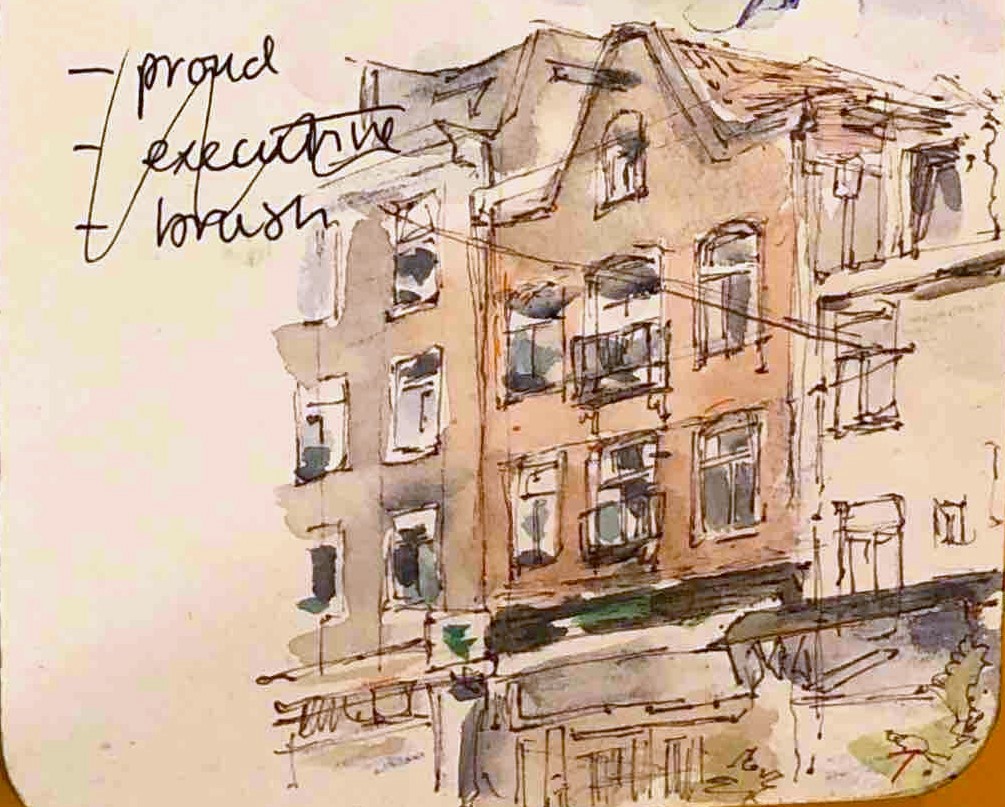 - proud
- executive
- brush